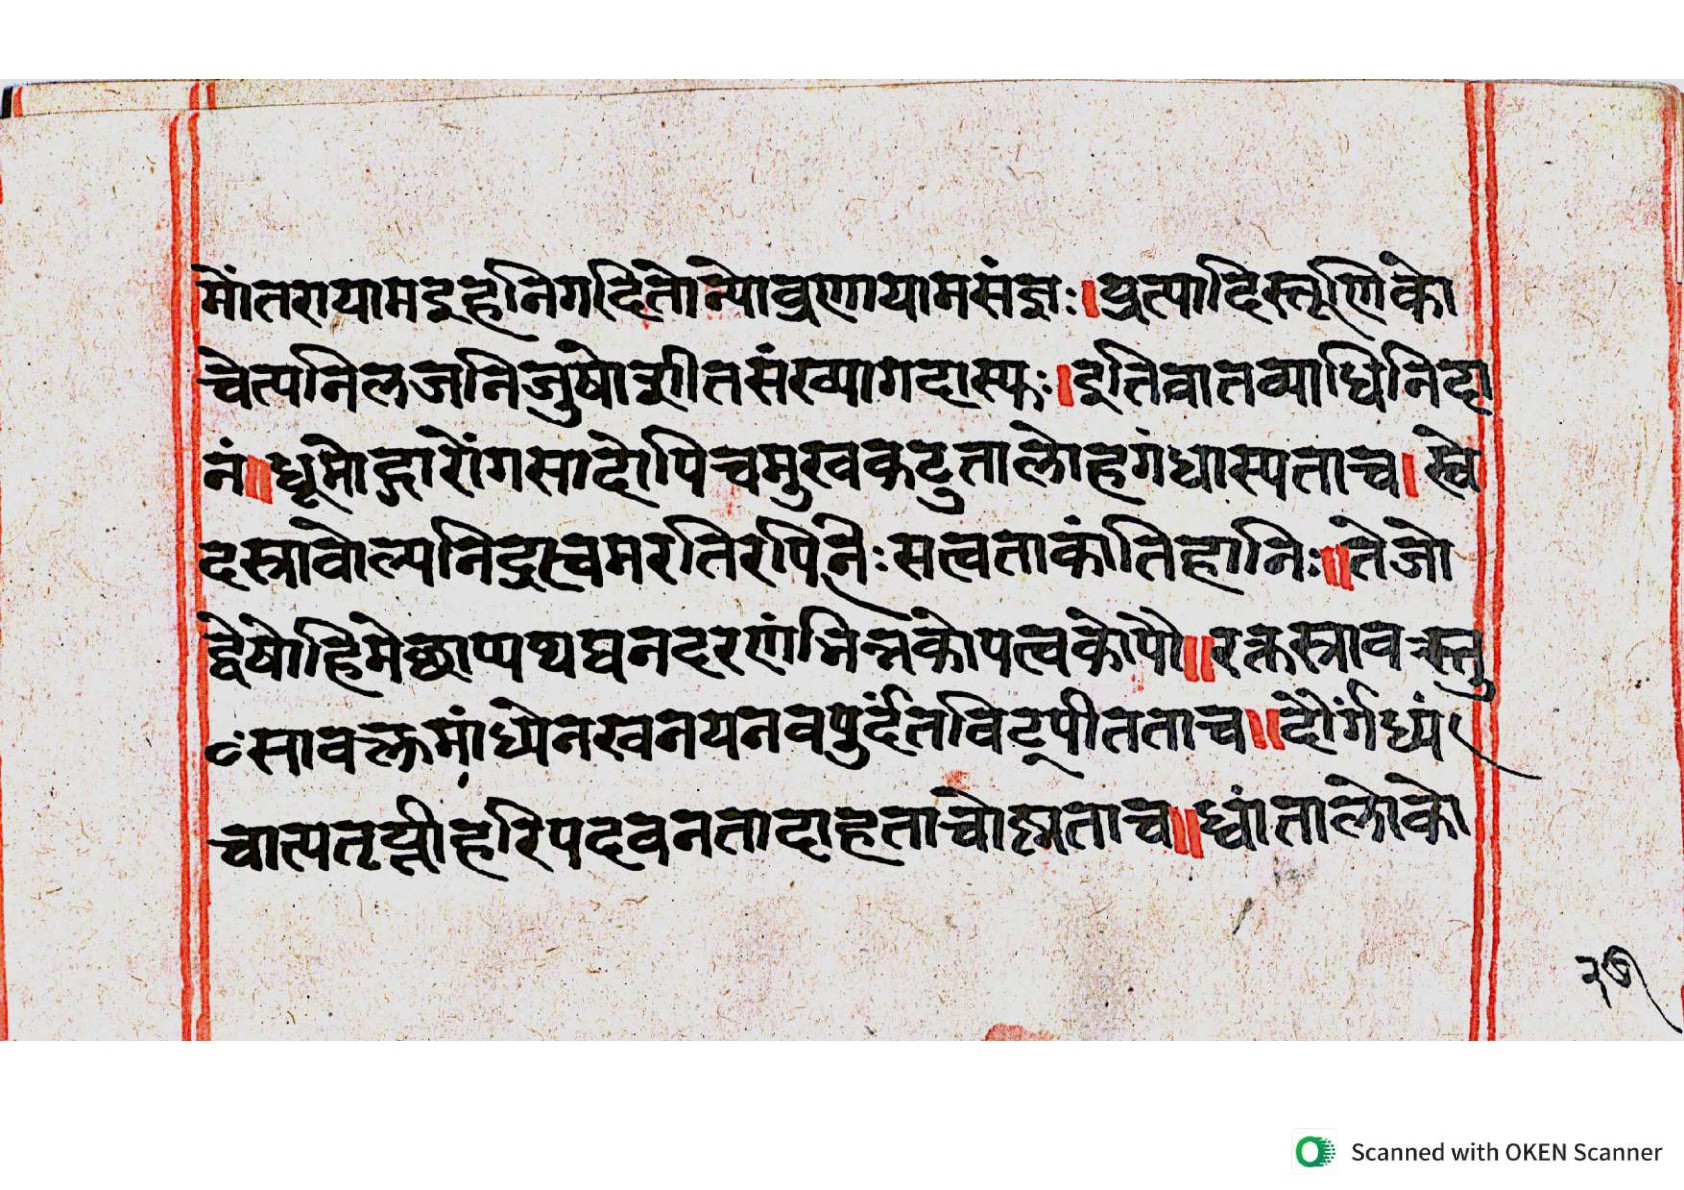 मोंतरायामइहनिगदितोन्योव्रणायामसंज्ञः।प्रत्यादिस्तृणिंको
चेत्यनिलजनिजुषोशीतसंख्यागदास्फः।इतिवातव्याधिनिदा
नं॥धूमोद्गारोंगसादोपिचमुखकटुतालोहगंधास्यताच।स्वे
दस्त्रावोल्पनिद्रत्वमरतिरपिनैःसत्वताकांतिहानिः॥तेजो
द्वेषोहिमेछाप्यथघनदरणंभिन्नकोपत्वकोपौ॥रक्तस्त्रावस्तु
ःसावक्त्रमांध्येनखनयनवपुर्दंतविट्पीतताच॥दौर्गंध्यं
चात्यतृप्तीहरिपदवनतादाहताचोष्मताच॥ध्वांतालोको
३७
Scanned with OKEN Scanner